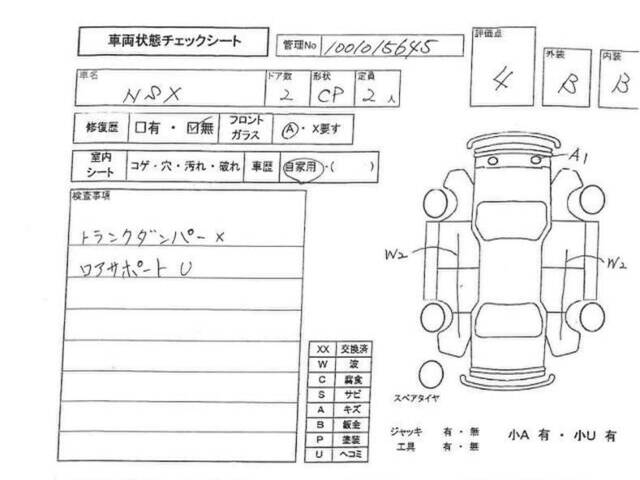 車両状態チェックシート 管理No 1001015645 評価点 4 外装 B 内装 B
車名 NSX ドア数 2 形状 CP 定員 2人
修復歴 □有・☑無 フロントガラス Ⓐ・X要す
室内シート コゲ・穴・汚れ・破れ 車歴 自家用・( )
検査事項
トランクダンパー×
ロアサポート U
A1
W2
W2
XX 交換済
W 波
C 腐食
S サビ
A キズ
B 鈑金
P 塗装
U ヘコミ
スペアタイヤ
ジャッキ 有・無
工具 有・無
小A 有・小U 有